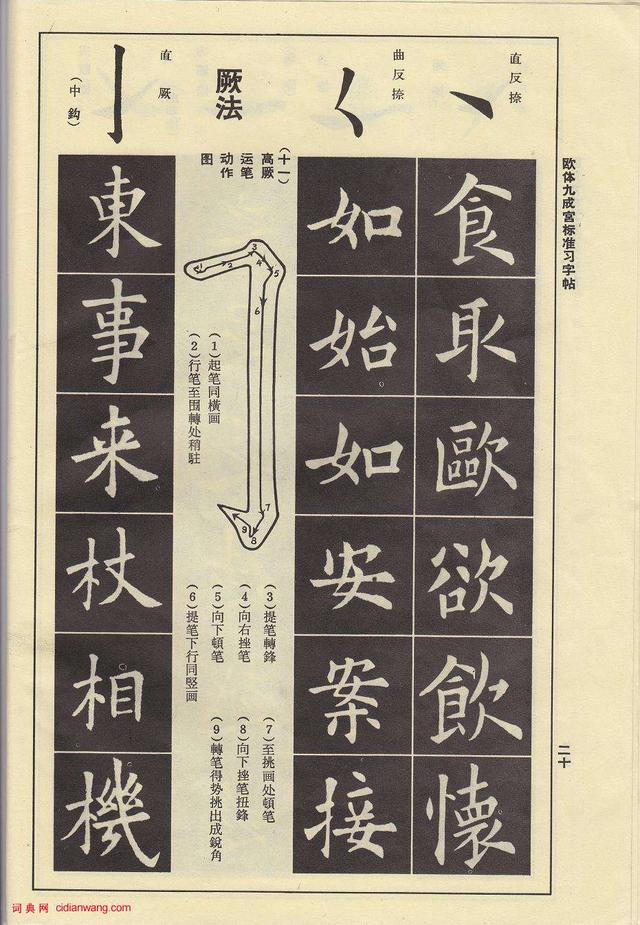 欧体九成宮标准习字帖
二十
直反捺
食取歐欲飲懷
曲反捺
如始如安案接
厥法
（十一）
高厥
运笔
动作
图
1
2
3
4
5
6
7
8
9
（1）起笔同橫画
（2）行笔至围轉处稍駐
（3）提笔轉鋒
（4）向右挫笔
（5）向下頓笔
（6）提笔下行同竖画
（7）至挑画处頓笔
（8）向下挫笔扭鋒
（9）轉笔得势挑出成銳角
直厥
（中鈎）
東事来杖相機
词典网 cidianwang.com